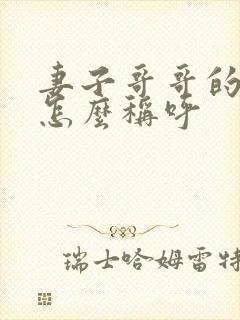 妻子哥哥的
怎麼稱呼
瑞士哈姆雷特